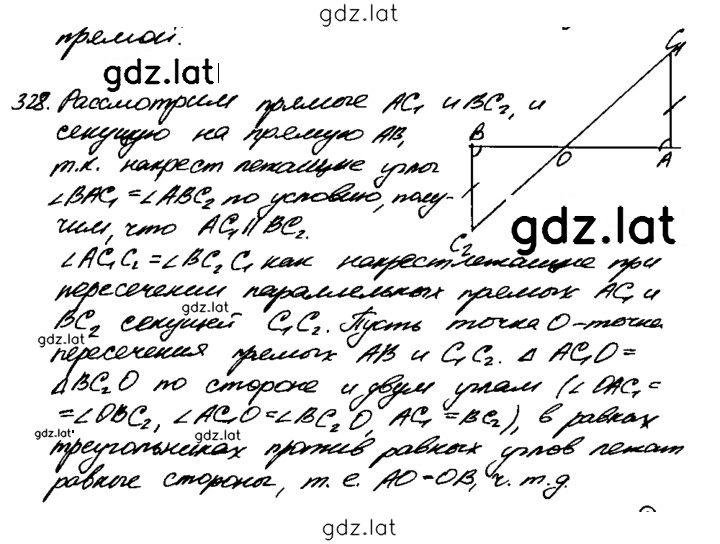 gdz.lat
прямой.
gdz.lat
C₁
328. Рассмотрим прямые AC₁ и BC₂, и
секущую на прямую AB,
B
O
A
т.к. накрест лежащие углы
∠BAC₁ = ∠ABC₂ по условию, полу-
чим, что AC₁ || BC₂.
gdz.lat
C₂
∠AC₁C₂ = ∠BC₂C₁ как накрест лежащие при
пересечении параллельных прямых AC₁ и
BC₂ секущей C₁C₂. Пусть точка O - точка
gdz.lat
gdz.lat
пересечения прямых AB и C₁C₂. Δ AC₁O =
Δ BC₂O по стороне и двум углам (∠OAC₁ =
= ∠OBC₂, ∠AC₁O = ∠BC₂O, AC₁ = BC₂), в равных
gdz.lat
gdz.lat
треугольниках против равных углов лежат
равные стороны, т.е. AO = OB, ч.т.д.
gdz.lat